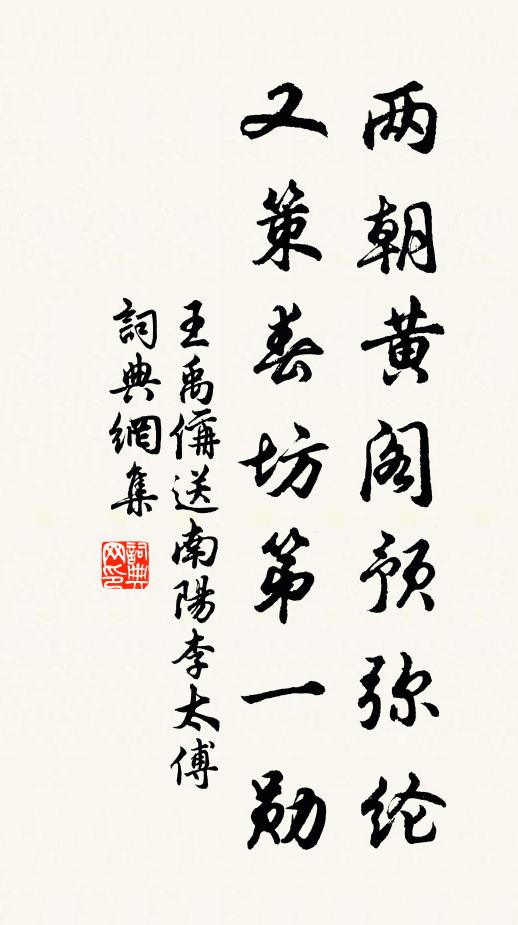 两朝黄阁预弥纶
又策春坊第一勋
王禹偁送南陽李太傅
詞典網集
詞典网印